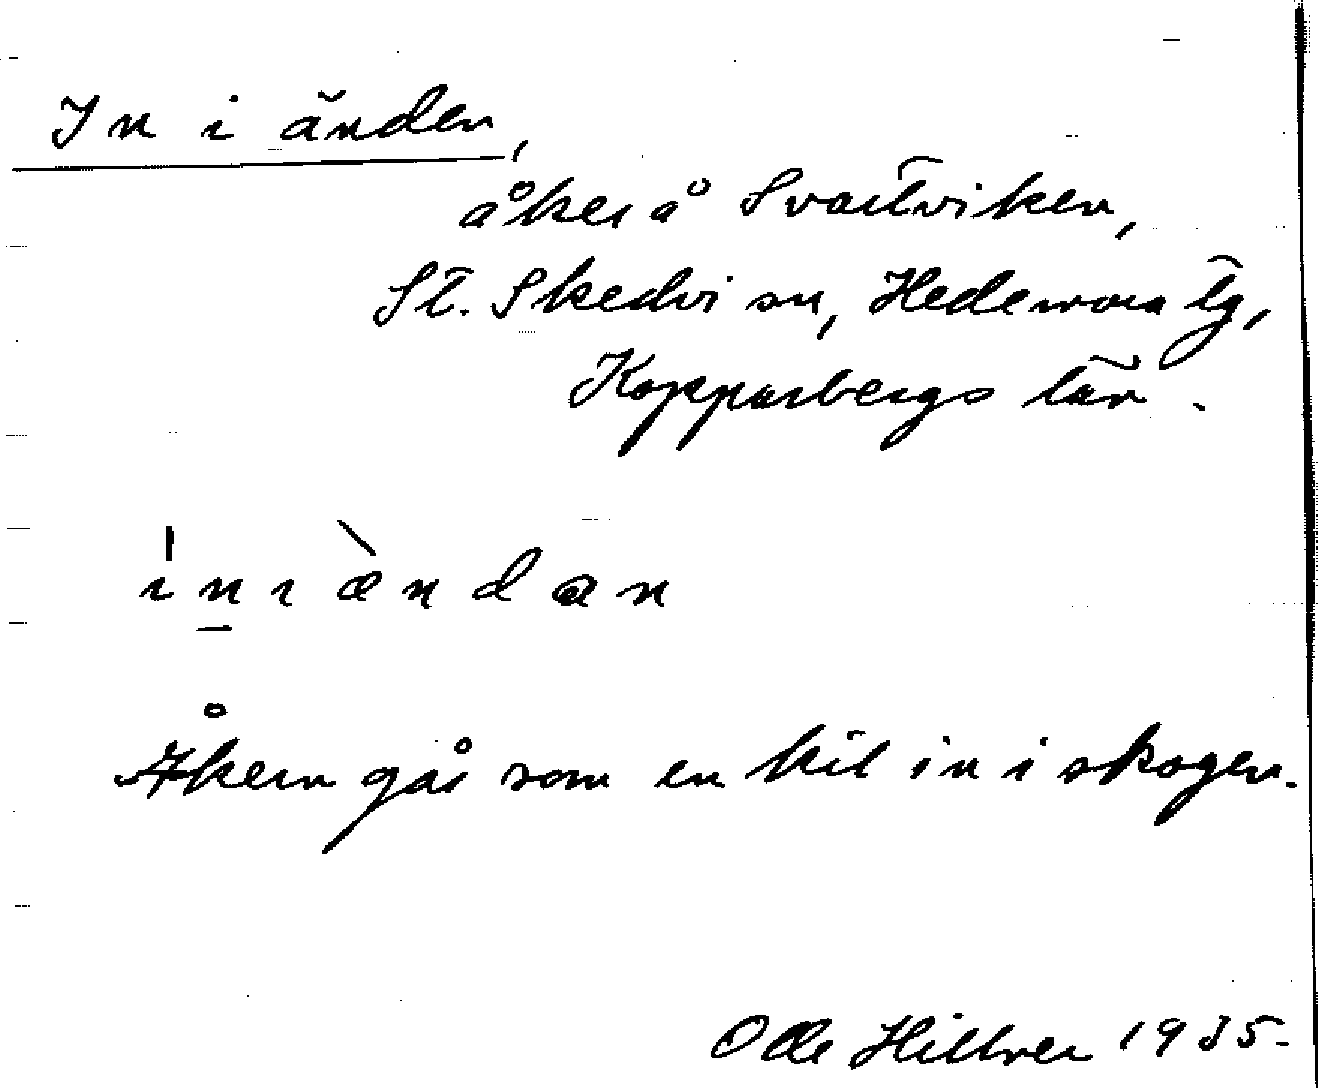 In i änden,
åker å Svartviken,
St. Skedvi sn, Hedemora tg,
Kopparbergs län.
ınıændan
Åkern går som en kil in i skogen.
Olle Hillver 1935.